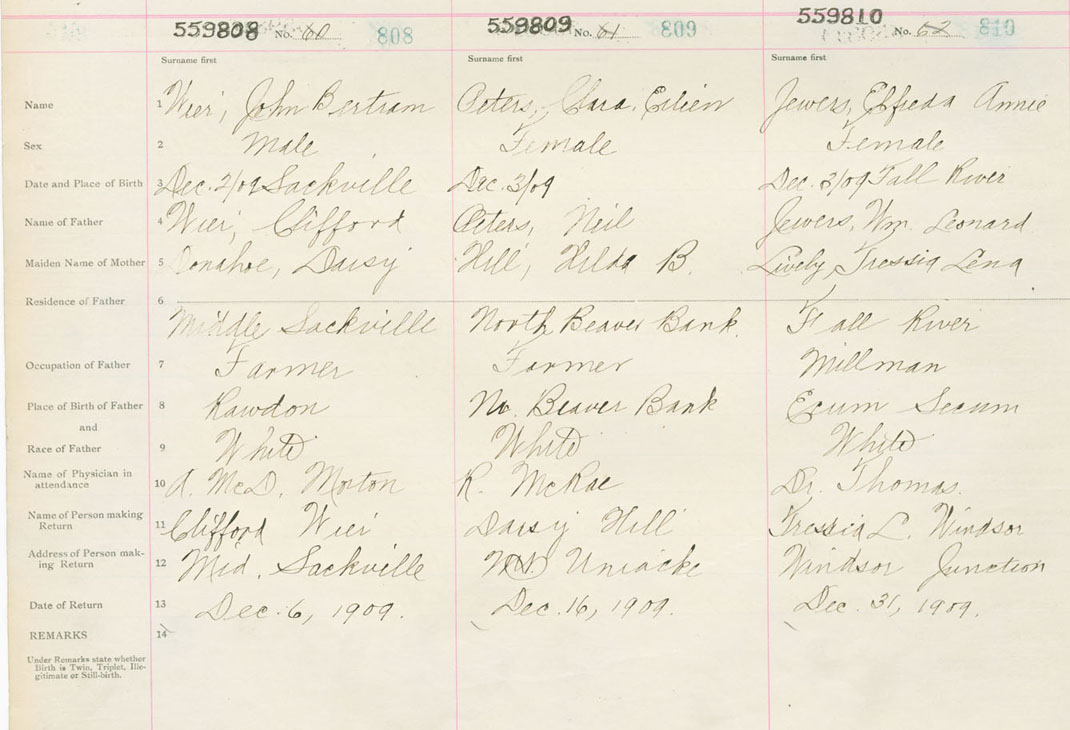 559808 No. 60 808 559809 No. 61 809 559810 No. 62 810
Surname first Surname first Surname first
Name 1 Wier, John Bertram Peters, Clara Eilien Jewers, Elfreda Annie
Sex 2 Male Female Female
Date and Place of Birth 3 Dec. 2/09 Sackville Dec. 3/09 Dec. 3/09 Fall River
Name of Father 4 Wier, Clifford Peters, Neil Jewers, Wm. Leonard
Maiden Name of Mother 5 Donahoe, Daisy Hill, Hilda B. Lively, Tressia Lena
Residence of Father 6
Middle Sackville North Beaver Bank Fall River
Occupation of Father 7 Farmer Farmer Millman
Place of Birth of Father 8 Rawdon No. Beaver Bank Ecum Secum
and
Race of Father 9 White White White
Name of Physician in
attendance 10 A. McD. Morton R. McRae Dr. Thomas.
Name of Person making
Return 11 Clifford Wier Daisy Hill Tressia L. Windsor
Address of Person mak-
ing Return 12 Mid. Sackville Uniacke Windsor Junction
Date of Return 13 Dec. 6, 1909. Dec. 16, 1909. Dec. 31, 1909.
REMARKS 14
Under Remarks state whether
Birth is Twin, Triplet, Ille-
gitimate or Still-birth.